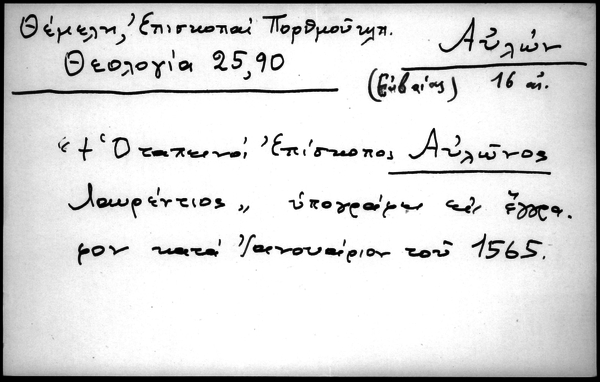 Θέμελη, Ἐπισκοπαί Πορθμοῦ κλπ.
Θεολογία 25,90
Αὐλών
(Εὐβοίας) 16 αἰ.
«+ Ὁ ταπεινός Ἐπίσκοπος Αὐλῶνος
Λαυρέντιος» ὑπογράφει εἰς ἔγγρα-
φον κατά Ἰανουάριον τοῦ 1565.